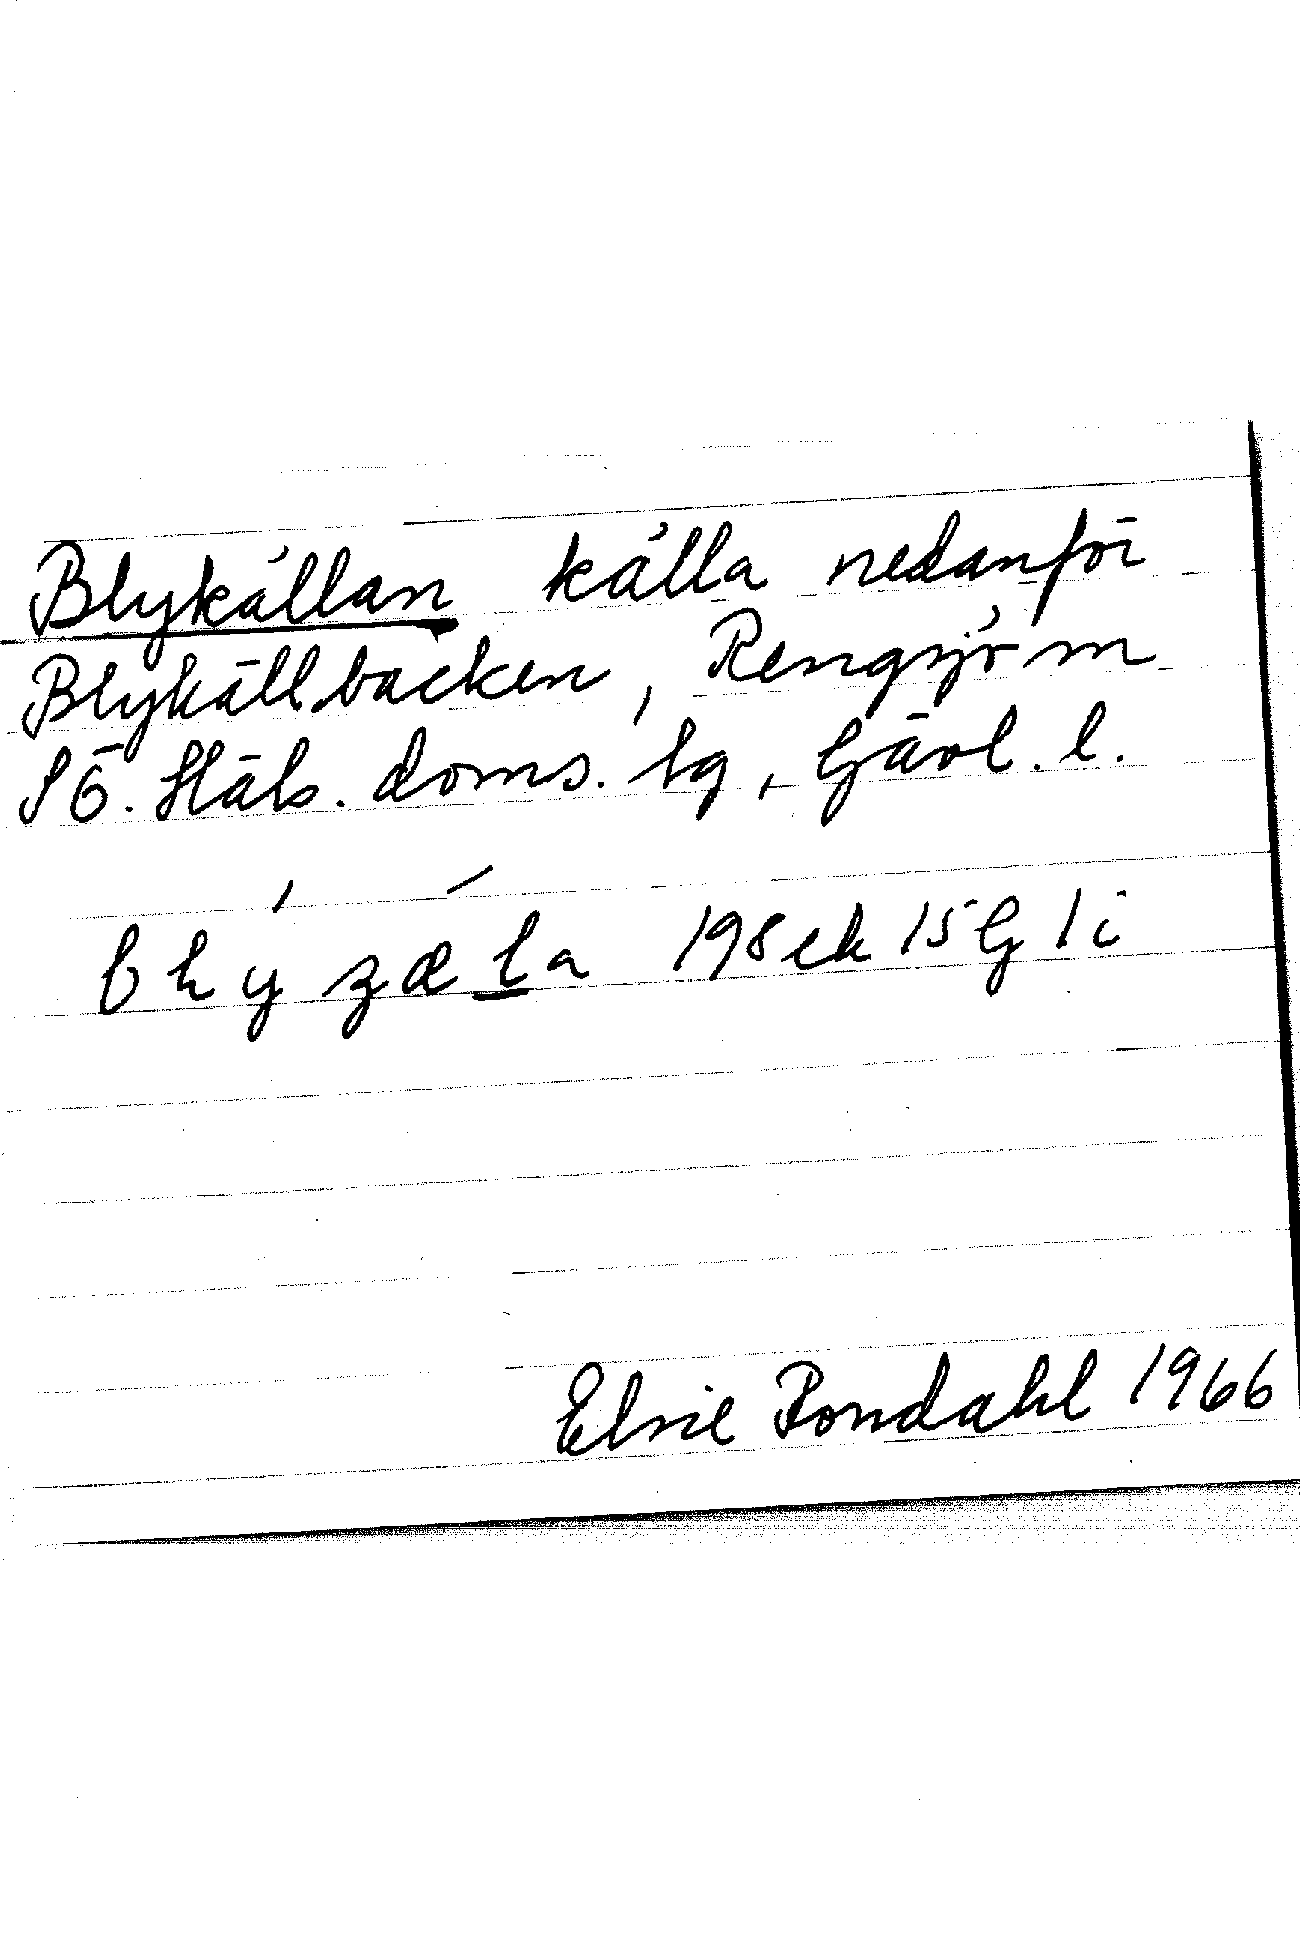 Blykällan källa nedanför
Blykällbacken, Rengsjö sn
SÖ. Häls. doms. lg, Gävl. l.
198 ek 15G 1i
Elsie Rondahl 1966